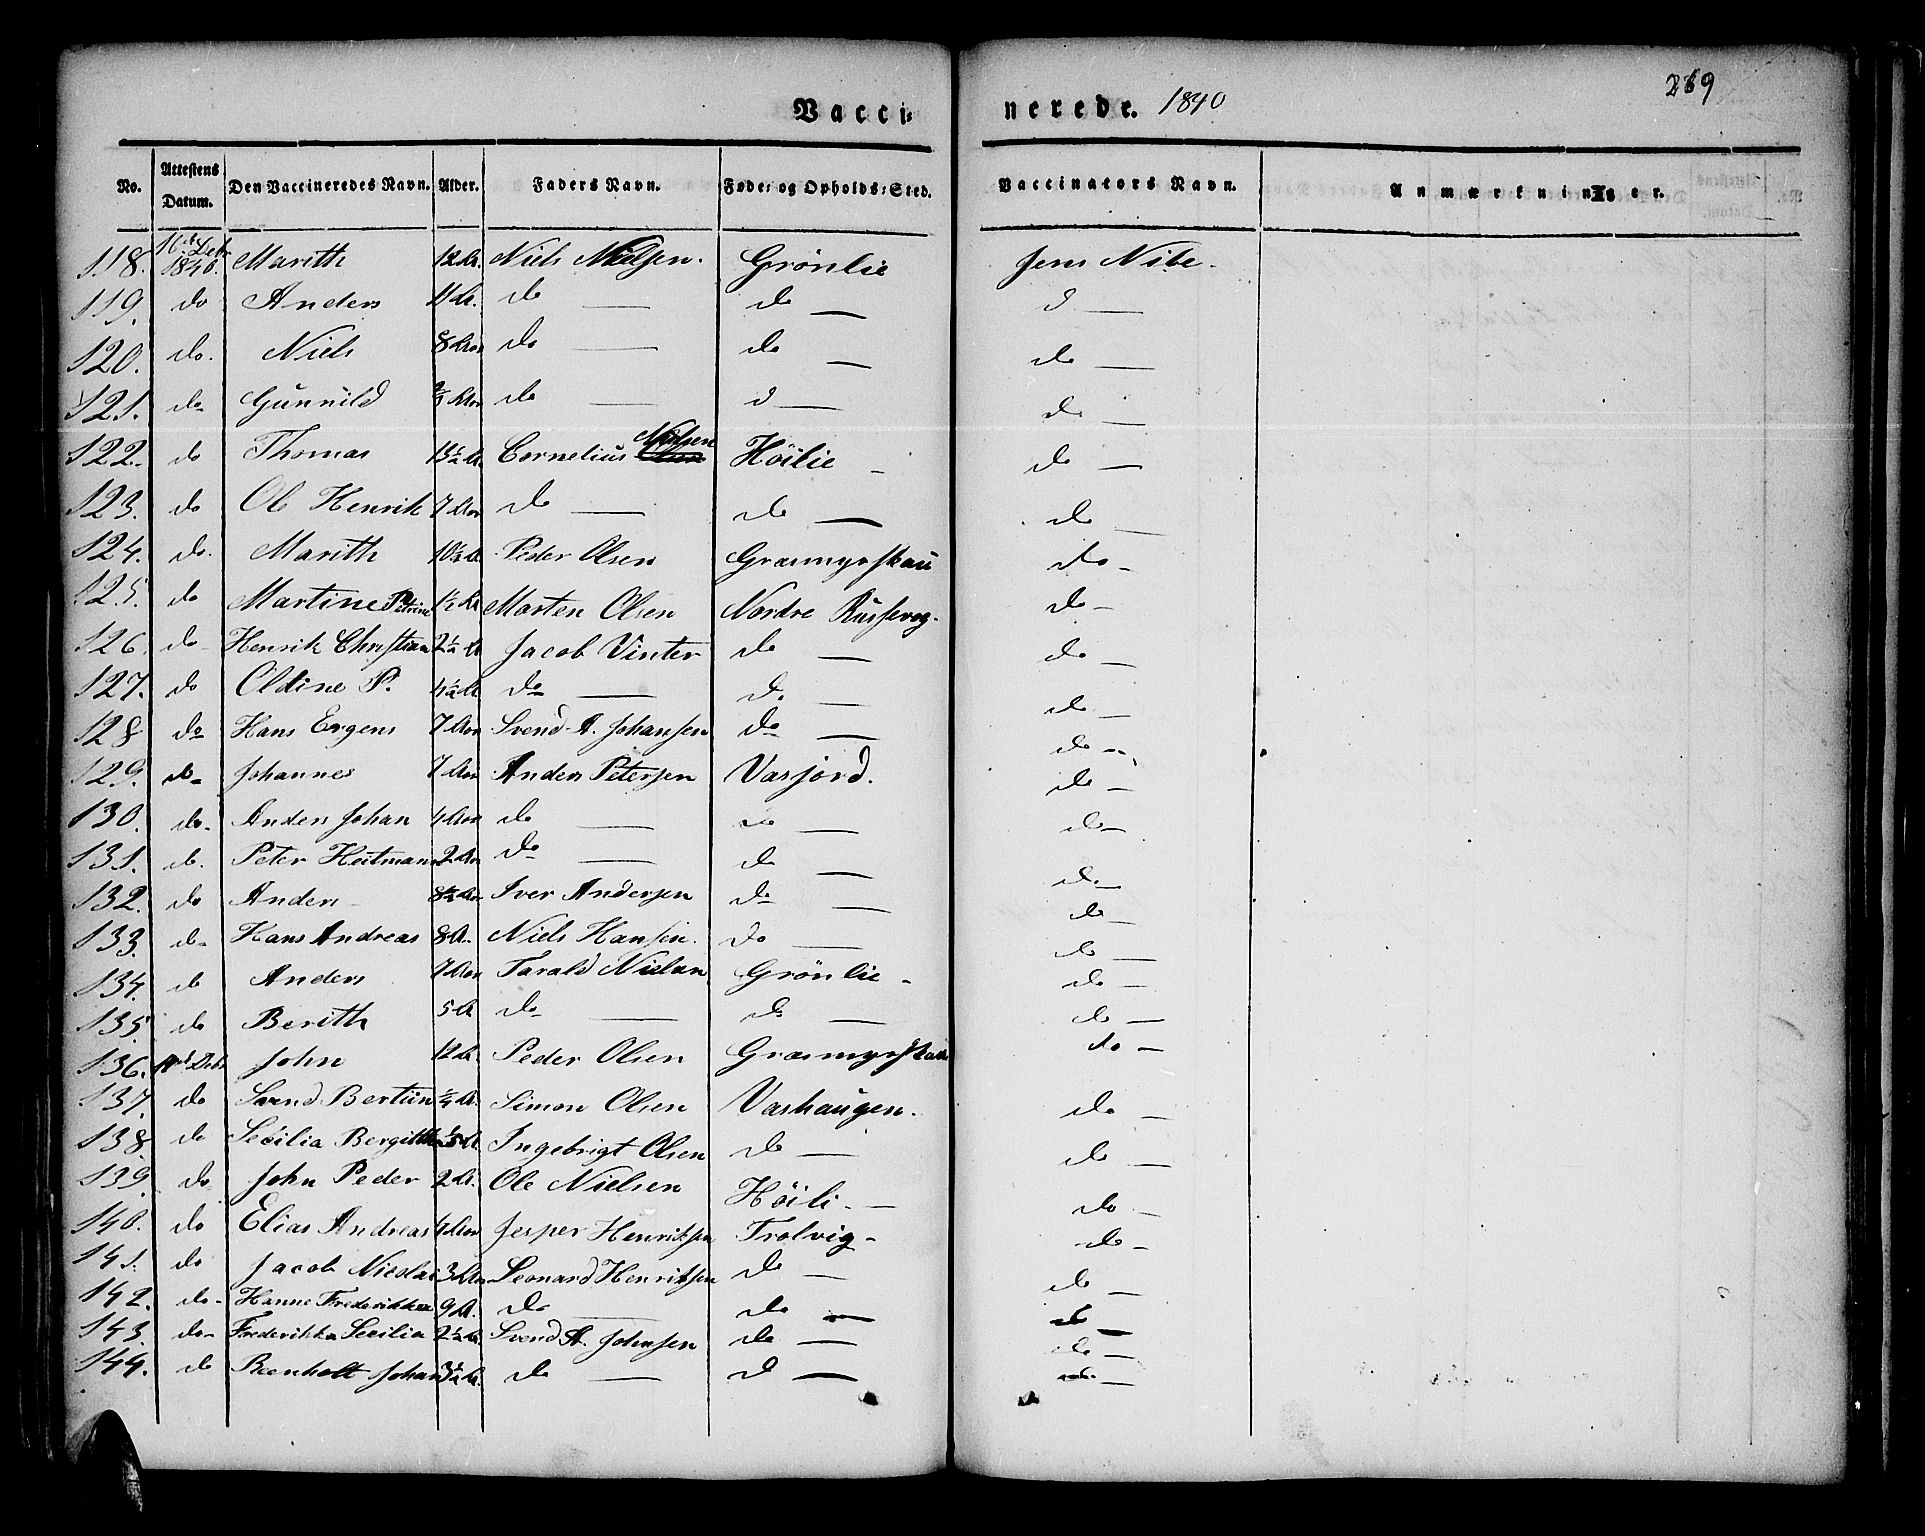 269
Vacci= nerede. 1840
No. Attestens Datum. Den Vaccineredes Navn. Alder. Faders Navn. Føde= og Opholds=Sted. Vaccinators Navn. Anmærkninger.
118. 1840. Marith 12 A. Niels Nielsen. Grönlie Jens Nibe.
119. do Anders 11 A. do — do — d —
120. do. Niels 8 Aar do — do — do —
121. do Gunnild Aar do — d — do —
122. do Thomas 13½ A. Cornelius Nielsen Höilie — do —
123. do Ol Henrik 7 Aar do — do — do —
124. do. Marith 10½ A Peder Olsen Græsmyrskau do —
125. do Martine Petrine 1½ A Morten Olsen Nordre Russevog. do —
126. do Henrik Christian 2½ A Jacob Vinter do — do —
127. do Oldine P. 4½ A do — do do —
128 do Hans Ergens 7 Aar Svend A. Johansen do — do —
129. do Johannes 7 Aar Anders Petersen Vasjord. do —
130. do. Anders Johan 4 Aar do — do — do —
131. do. Peter Heitmann 2 Aar do — do — do —
132. do Anders 8½ Aar Iver Andersen do — do —
133. do Hans Andreas 8 A. Niels Hansen. do — do —
134. do Anders 7 Aar Tarald Nielsen Grönlie — do —
135. do Berith 5 A do — do — do —
136. Debr John 12 A. Peder Olsen Græsmyrskau do —
137. do Svend Bertiin A. Simon Olsen Vashaugen. do —
138. do Secilia Bergitha A Ingebrigt Olsen do — do —
139. do John Peder 2 A. Ole Nielsen Höili. — do —
140. do Elias Andreas 4 Aar Jesper Henriksen Trolvig — do —
141. do Jacob Nicolai 3 Aar Leonard Henriksen do — do —
142. do — Hanne Frederikka 9 A. do — do — do —
143. do — Frederikka Secilia 2½ A Svend A. Johansen do — do —
144. do Beenholt Johan 3½ A. do — d — do —